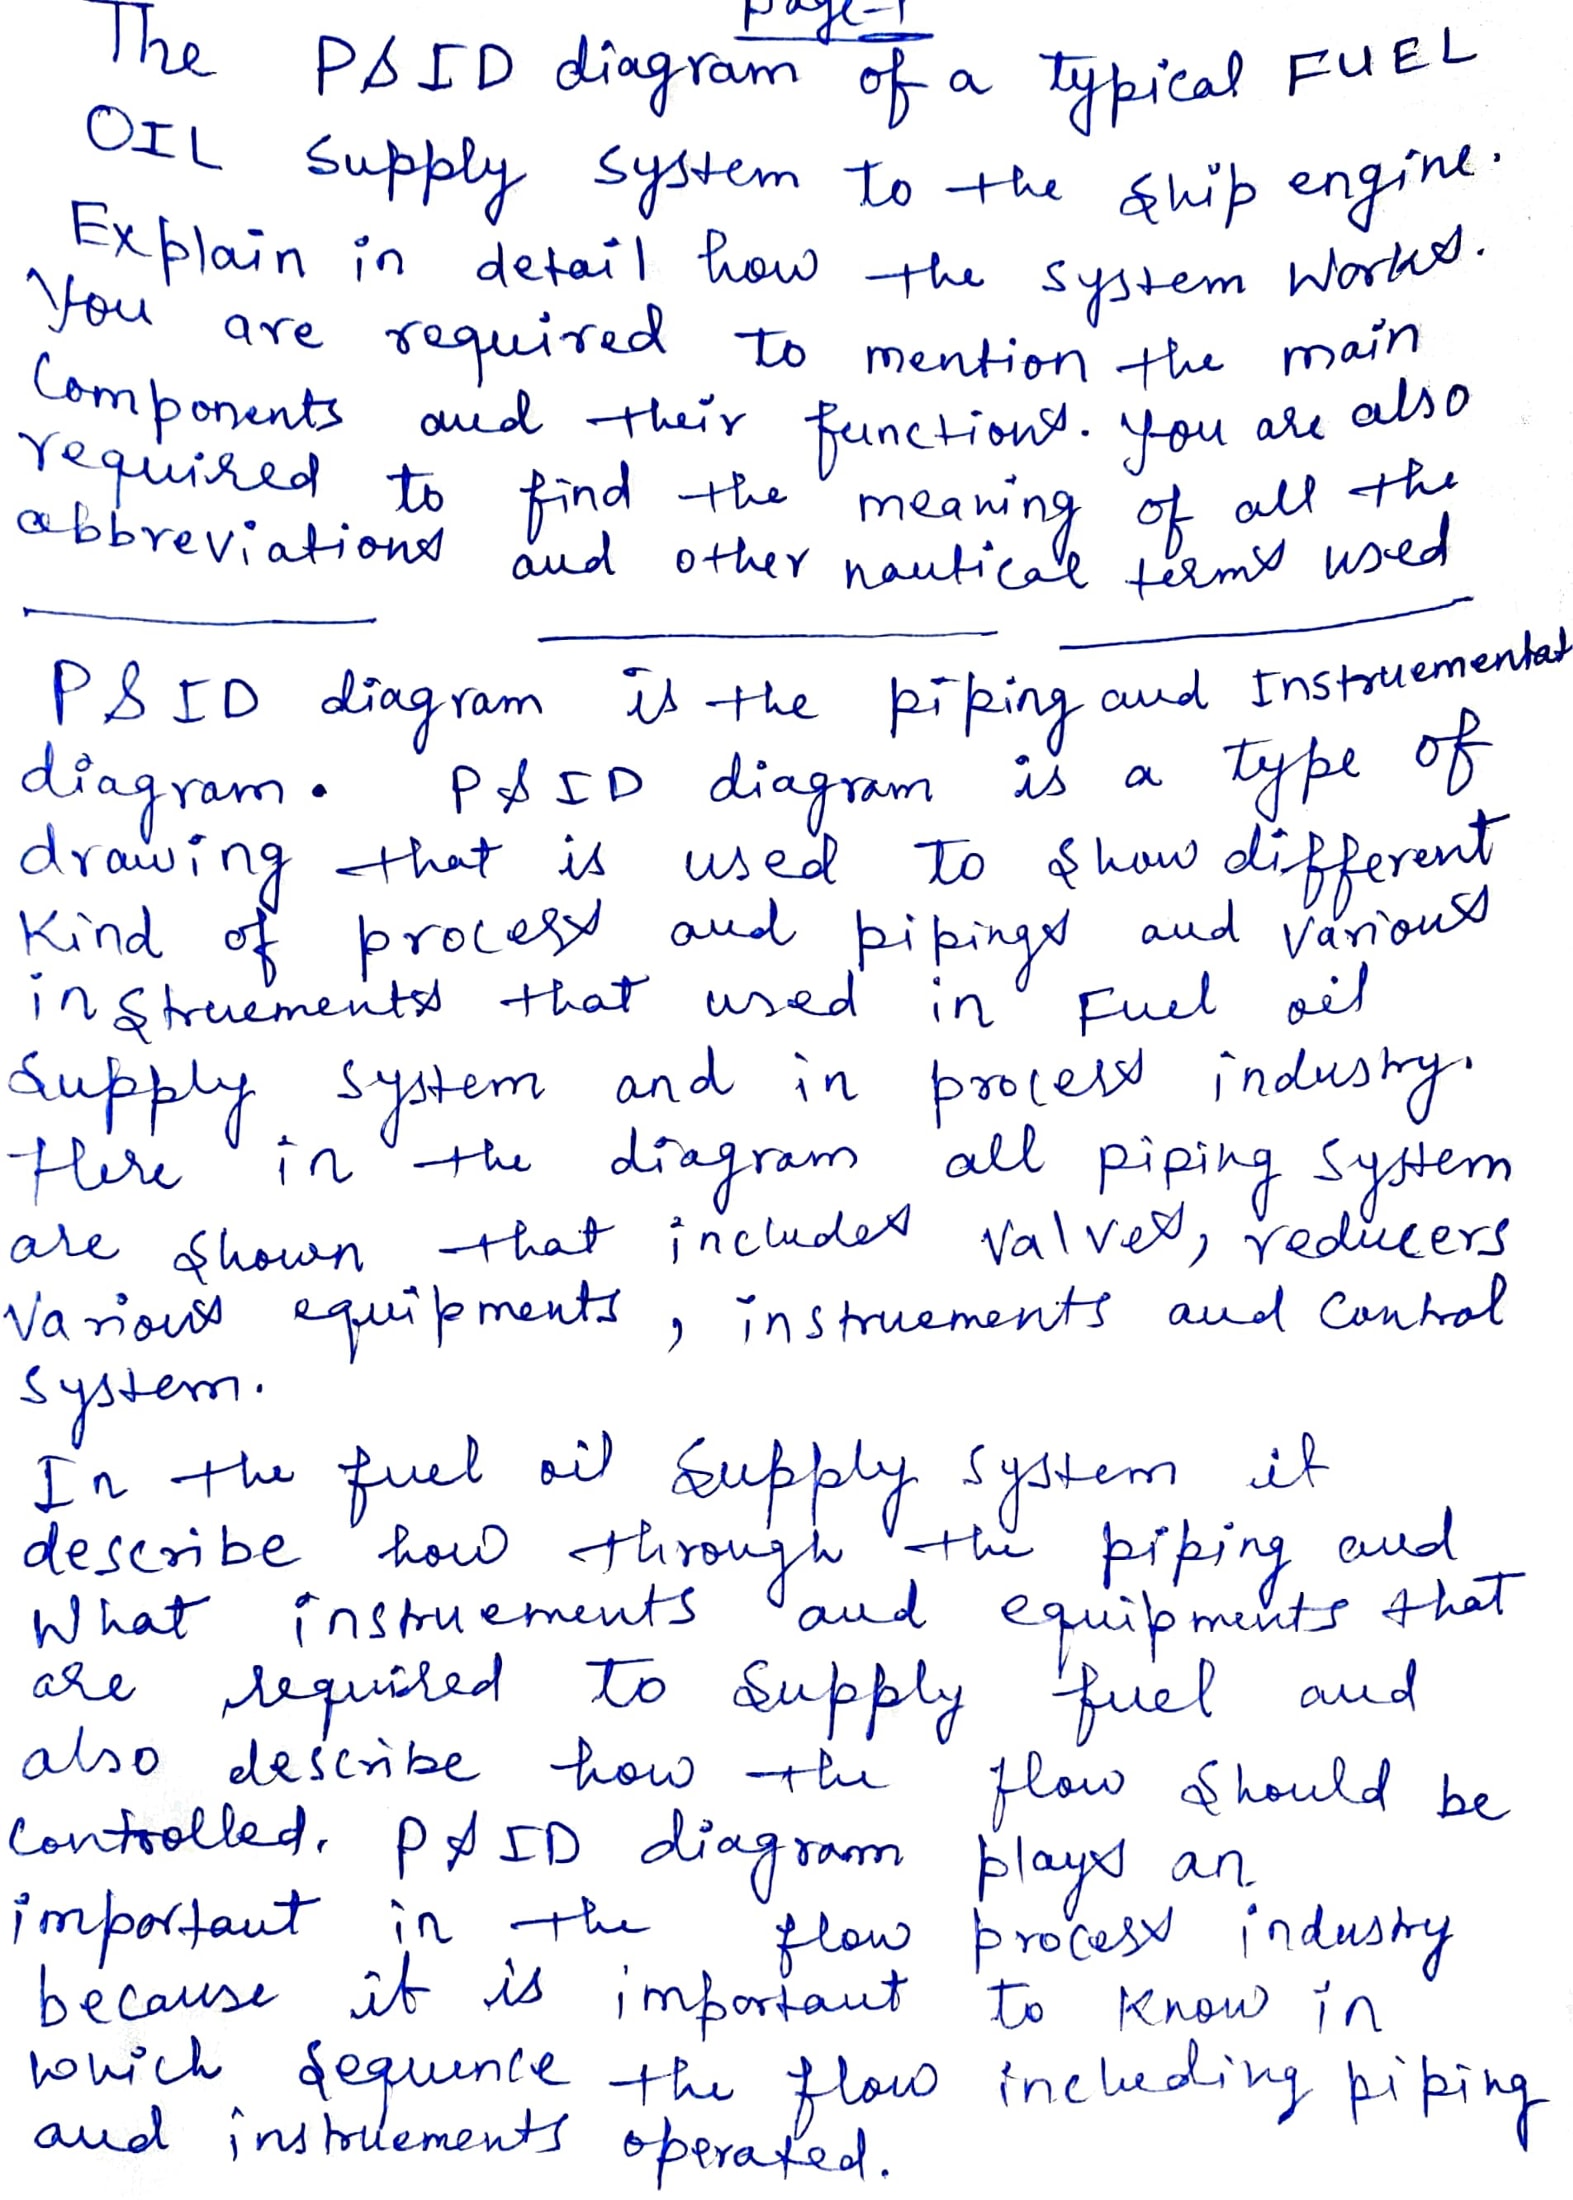 Page-1
The P&ID diagram of a typical FUEL
OIL supply system to the ship engine.
Explain in detail how the system works.
You are required to mention the main
Components and their functions. You are also
required to find the meaning of all the
abbreviations and other nautical terms used
P&ID diagram is the piping and Instruementat
diagram. P&ID diagram is a type of
drawing that is used to show different
Kind of process and pipings and various
instruements that used in Fuel oil
Supply system and in process industry.
Here in the diagram all piping system
are shown that includes valves, reducers
Various equipments, instruements and Control
system.
In the fuel oil supply system it
describe how through the piping and
What instruements and equipments that
are required to supply fuel and
also describe how the flow should be
Controlled. P&ID diagram plays an
important in the flow process industry
because it is important to know in
which sequence the flow including piping
and instruements operated.